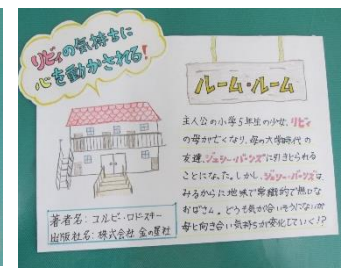 リビィの気持ちに
心を動かされる!
ルーム・ルーム
主人公の小学5年生の少女、リビィ
の母が亡くなり、母の大学時代の
友達、ジェシー・バーンズに引きとられる
ことになった。しかし、ジェシー・バーンズは、
みるからに地味で常識的で無口な
おばさん。どうも気が合いそうにないが
母と向き合い気持ちが変化していく!?
著者名:コルビー・ロドースキー
出版社名:株式会社 金の星社